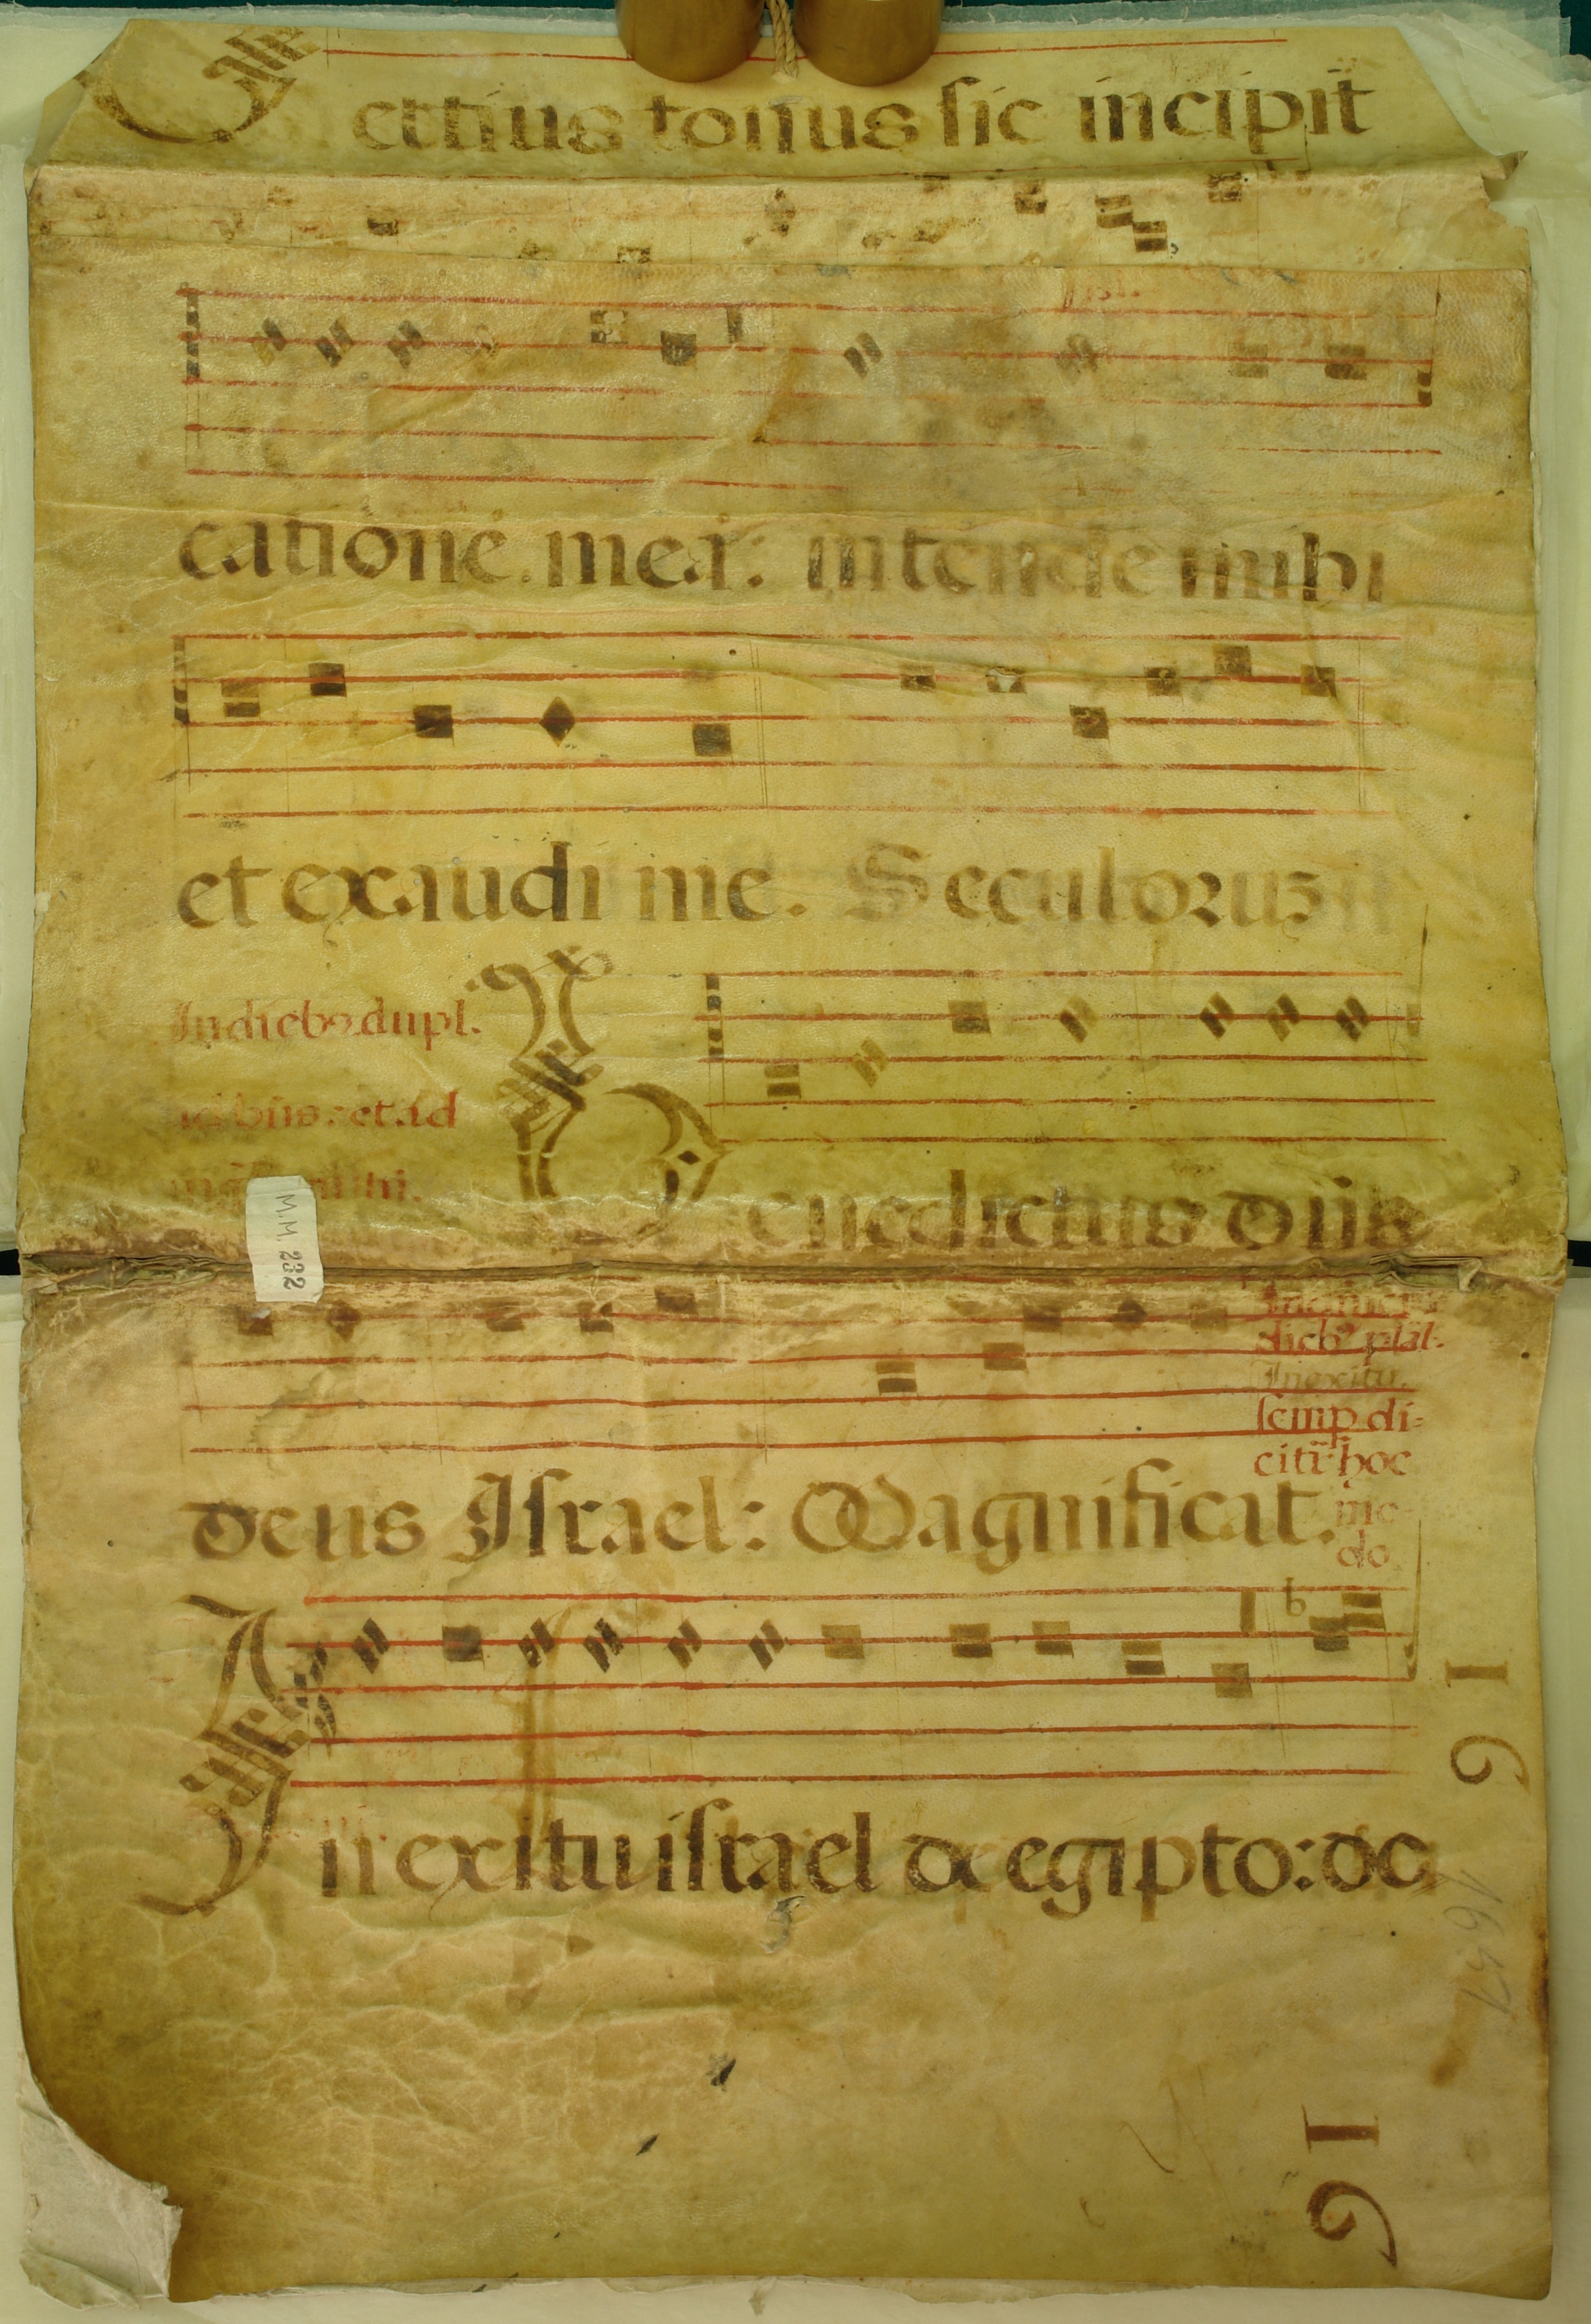 Tertius tonus sic incipit
catione mea: intende mihi
et exaudi me. Seculoruz
In dieb9 dupl.
et ad
Benedictus dñs
M.M. 232
dieb9 plal.
In exitu.
semp di-
citr hoc
mo-
do
deus Israel: Magnificat.
In exitu israel de egipto: de
16
16